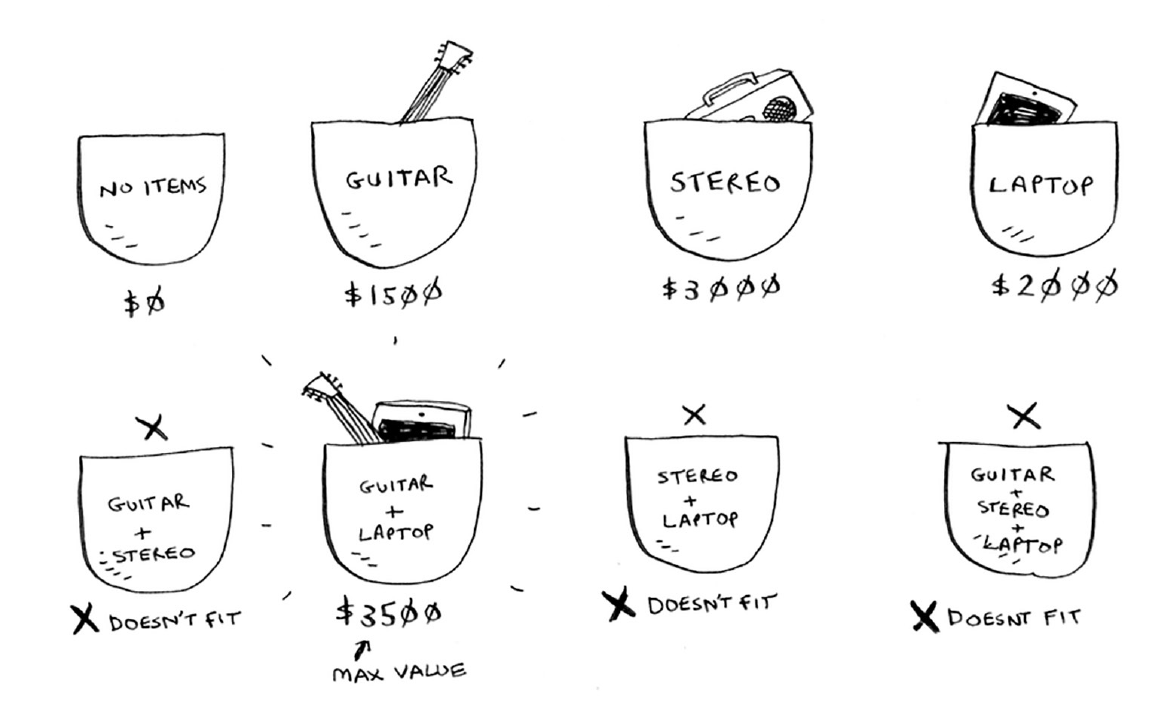 NO ITEMS
$0
GUITAR
$1500
STEREO
$3000
LAPTOP
$2000
X
GUITAR
+
STEREO
X DOESN'T FIT
GUITAR
+
LAPTOP
$3500
MAX VALUE
X
STEREO
+
LAPTOP
X DOESN'T FIT
X
GUITAR
+
STEREO
+
LAPTOP
X DOESNT FIT